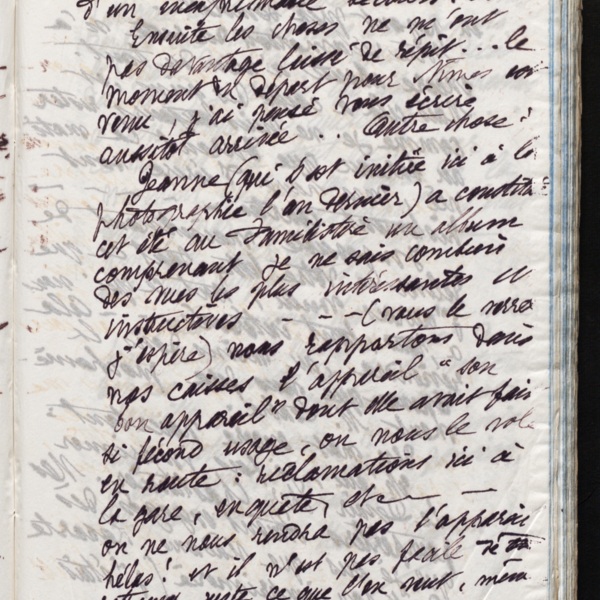 d'un
Ensuite les choses ne m'ont
pas davantage laissé de répit... le
moment du départ pour Nimes est
venu, j'ai pensé vous écrire
aussitôt arrivée .. Autre chose :
Jeanne (qui s'est initiée ici à la
photographie l'an dernier) a constitué
cet été au Familistère un album
comprenant je ne sais combien
des vues les plus intéressantes et
instructives - - - (vous le verrez
j'espère) nous rapportons dans
nos caisses l'appareil "son
bon appareil" dont elle avait fait
si fécond usage, on nous le vole
en route : réclamations ici à
la gare, enquête, etc —
on ne nous rendra pas l'appareil
hélas ! et il n'est pas facile
ce que l'on veut, même